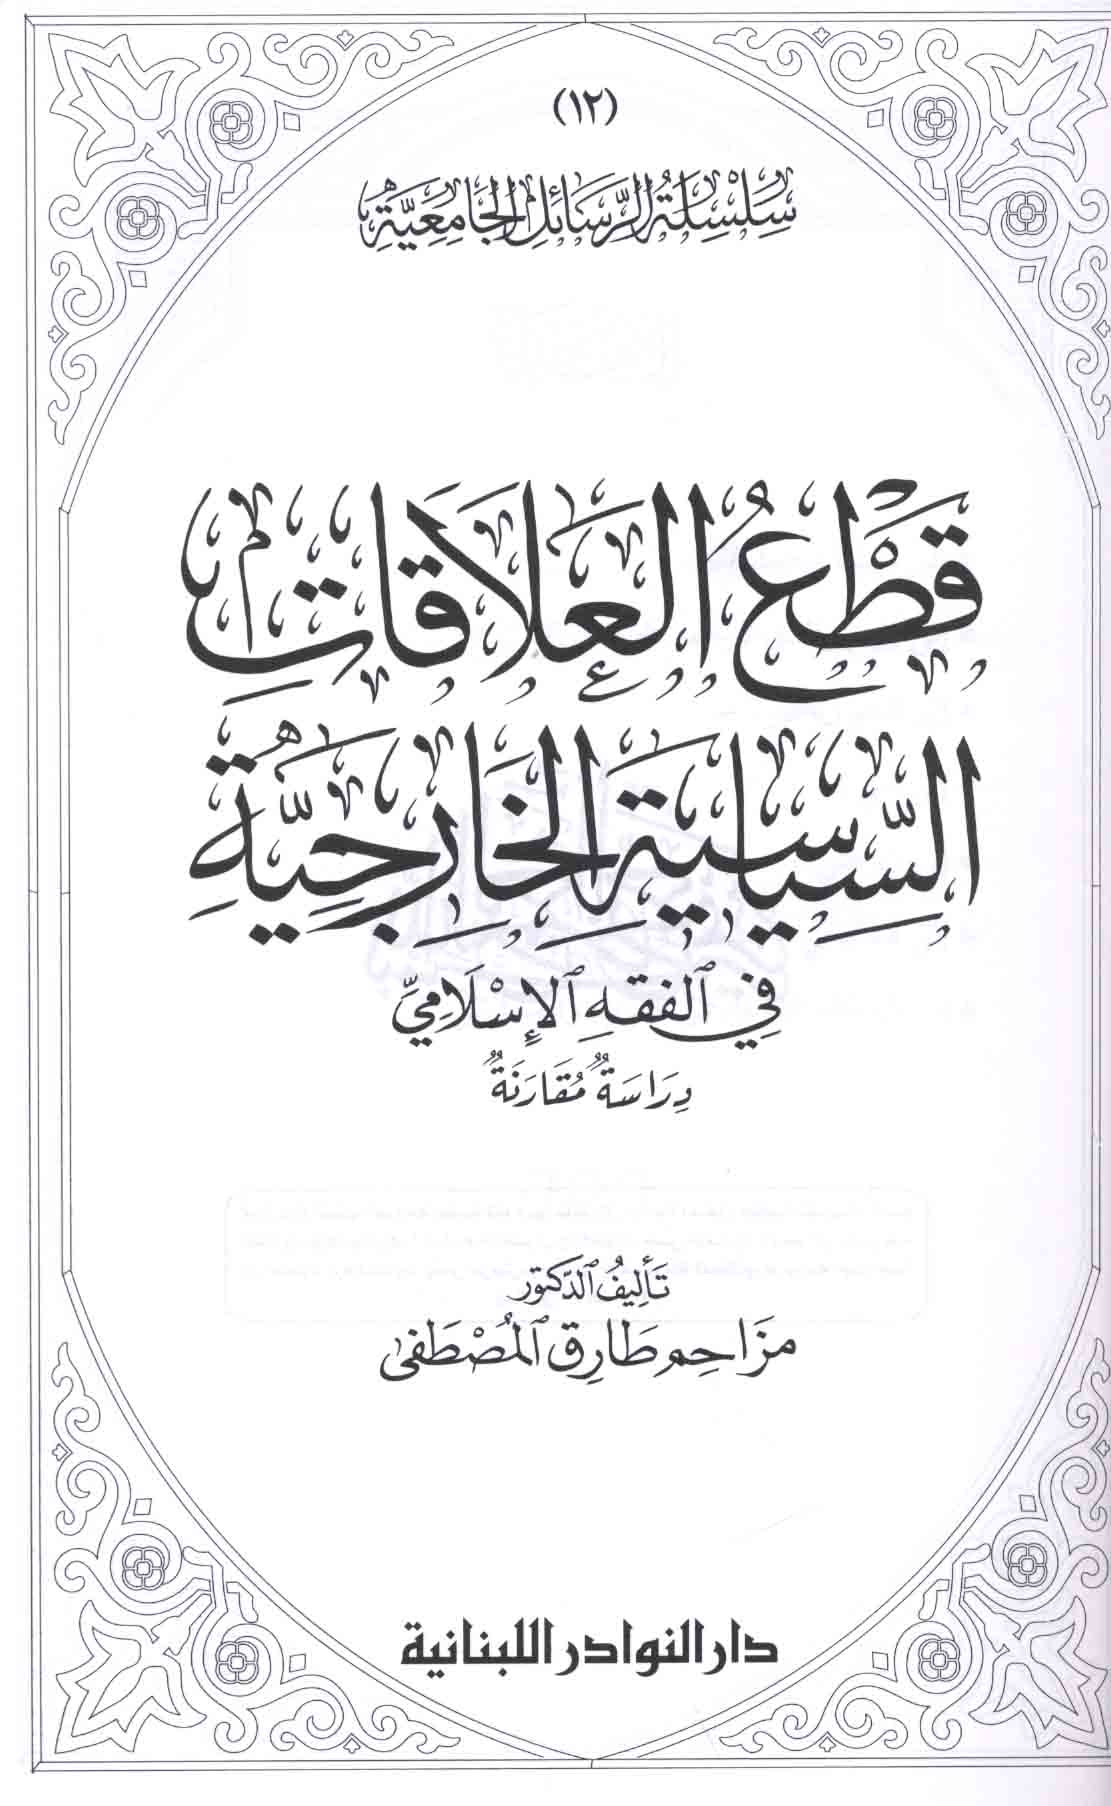 (١٢)
سلسلة الرسائل الجامعية
قطع العلاقات
السياسية الخارجية
في الفقه الإسلامي
دراسة مقارنة
تأليف الدكتور
مزاحم طارق المصطفى
دار النوادر اللبنانية